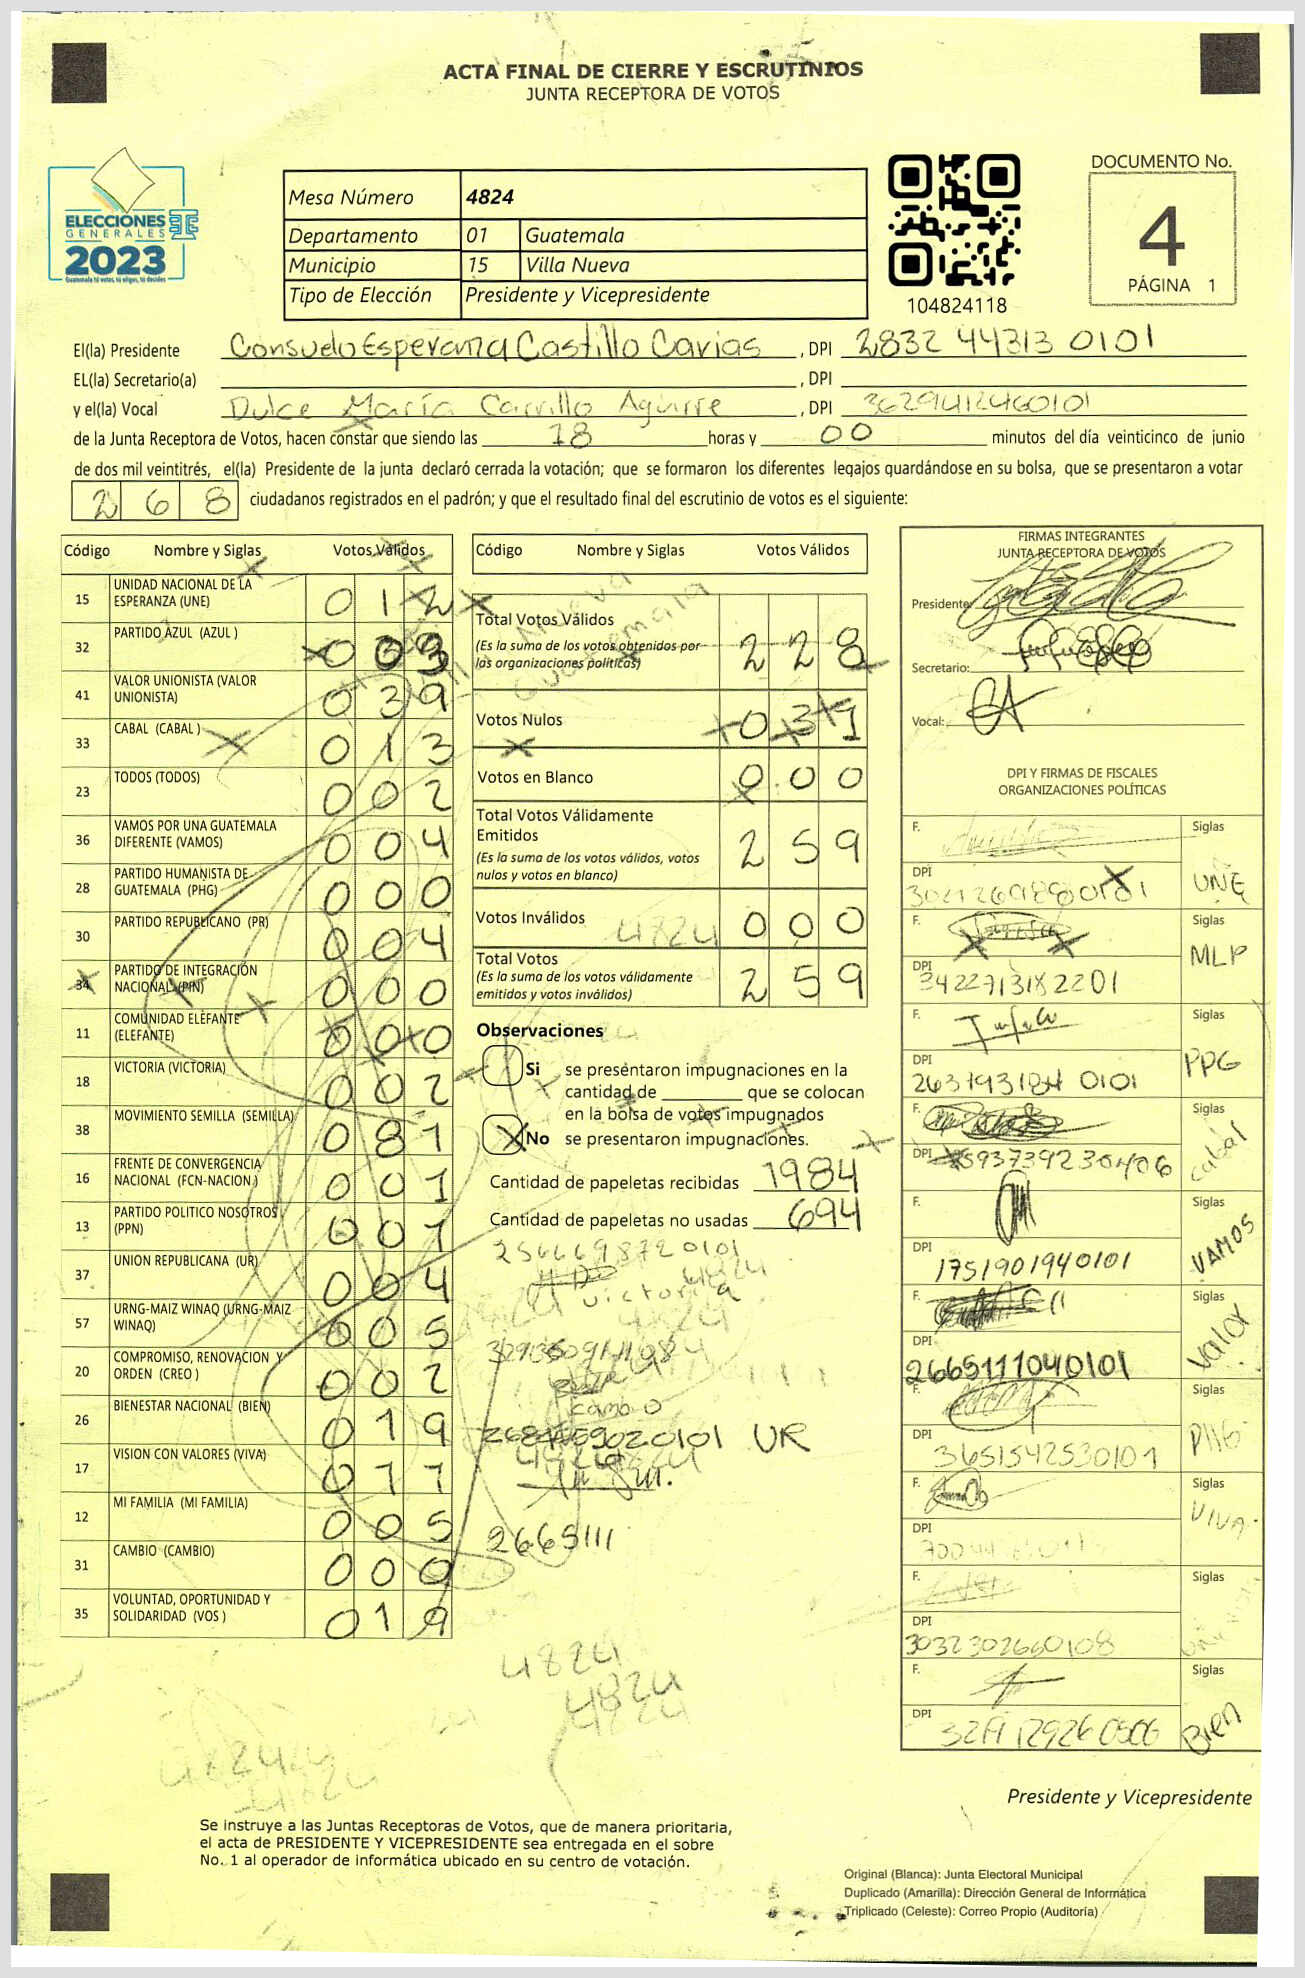 ACTA FINAL DE CIERRE Y ESCRUTINIOS
JUNTA RECEPTORA DE VOTOS
ELECCIONES
GENERALES
2023
Guatemala tú votas, tú eliges, tú decides
Mesa Número 4824
Departamento 01 Guatemala
Municipio 15 Villa Nueva
Tipo de Elección Presidente y Vicepresidente
104824118
DOCUMENTO No.
4
PÁGINA 1
El(la) Presidente Consuelo Esperanza Castillo Carias, DPI 2832 44313 0101
EL(la) Secretario(a) , DPI
y el(la) Vocal Dulce María Carrillo Aguirre, DPI 3629412460101
de la Junta Receptora de Votos, hacen constar que siendo las 18 horas y 00 minutos del día veinticinco de junio
de dos mil veintitrés, el(la) Presidente de la junta declaró cerrada la votación; que se formaron los diferentes legajos guardándose en su bolsa, que se presentaron a votar
268 ciudadanos registrados en el padrón; y que el resultado final del escrutinio de votos es el siguiente:
Código Nombre y Siglas Votos Válidos
15 UNIDAD NACIONAL DE LA ESPERANZA (UNE) 012
32 PARTIDO AZUL (AZUL ) 003
41 VALOR UNIONISTA (VALOR UNIONISTA) 039
33 CABAL (CABAL ) 013
23 TODOS (TODOS) 002
36 VAMOS POR UNA GUATEMALA DIFERENTE (VAMOS) 004
28 PARTIDO HUMANISTA DE GUATEMALA (PHG) 000
30 PARTIDO REPUBLICANO (PR) 004
34 PARTIDO DE INTEGRACIÓN NACIONAL (PIN) 000
11 COMUNIDAD ELEFANTE (ELEFANTE) 000
18 VICTORIA (VICTORIA) 002
38 MOVIMIENTO SEMILLA (SEMILLA) 081
16 FRENTE DE CONVERGENCIA NACIONAL (FCN-NACION ) 001
13 PARTIDO POLITICO NOSOTROS (PPN) 001
37 UNION REPUBLICANA (UR) 004
57 URNG-MAIZ WINAQ (URNG-MAIZ WINAQ) 005
20 COMPROMISO, RENOVACION Y ORDEN (CREO ) 002
26 BIENESTAR NACIONAL (BIEN) 019
17 VISION CON VALORES (VIVA) 011
12 MI FAMILIA (MI FAMILIA) 005
31 CAMBIO (CAMBIO) 000
35 VOLUNTAD, OPORTUNIDAD Y SOLIDARIDAD (VOS ) 019
Código Nombre y Siglas Votos Válidos
Total Votos Válidos 228
(Es la suma de los votos obtenidos por
las organizaciones políticas)
Votos Nulos 031
Votos en Blanco 000
Total Votos Válidamente
Emitidos 259
(Es la suma de los votos válidos, votos
nulos y votos en blanco)
Votos Inválidos 4824 000
Total Votos 259
(Es la suma de los votos válidamente
emitidos y votos inválidos)
Observaciones
Si se presentaron impugnaciones en la
cantidad de que se colocan
en la bolsa de votos impugnados
X No se presentaron impugnaciones.
Cantidad de papeletas recibidas 1984
Cantidad de papeletas no usadas 694
2566698720101
4824
Victoria
UR
2665111
4824
4824
4824
FIRMAS INTEGRANTES
JUNTA RECEPTORA DE VOTOS
Presidente:
Secretario:
Vocal:
DPI Y FIRMAS DE FISCALES
ORGANIZACIONES POLÍTICAS
F. Siglas
DPI UNE
F. Siglas
DPI 3422713182201 MLP
F. Siglas
DPI PPG
F. Siglas
DPI Cabal
F. Siglas
DPI 1751901940101 VAMOS
F. Siglas
DPI 2665111040101 Valor
F. Siglas
DPI 3651542530101 PHG
F. Siglas
DPI VIVA
F. Siglas
DPI 3032302660108
F. Siglas
DPI Bien
Presidente y Vicepresidente
Se instruye a las Juntas Receptoras de Votos, que de manera prioritaria,
el acta de PRESIDENTE Y VICEPRESIDENTE sea entregada en el sobre
No. 1 al operador de informática ubicado en su centro de votación.
Original (Blanca): Junta Electoral Municipal
Duplicado (Amarilla): Dirección General de Informática
Triplicado (Celeste): Correo Propio (Auditoría)